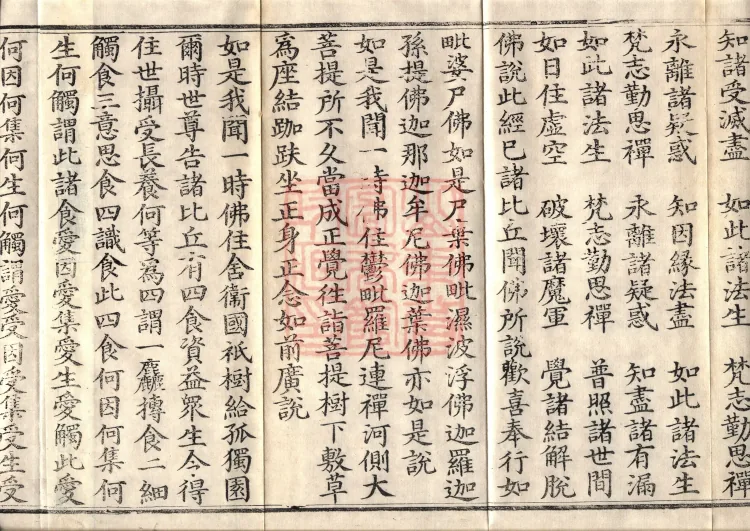 知諸受滅盡　如此諸法生　梵志勤思禪
永離諸疑惑　知因緣法盡　如此諸法生
梵志勤思禪　永離諸疑惑　知盡諸有漏
如此諸法生　梵志勤思禪　普照諸世間
如日住虛空　破壞諸魔軍　覺諸結解脫
佛說此經已諸比丘聞佛所說歡喜奉行如
毗婆尸佛如是尸棄佛毗濕波浮佛迦羅迦
孫提佛迦那迦牟尼佛迦葉佛亦如是說
如是我聞一時佛住鬱毗羅尼連禪河側大
菩提所不久當成正覺往詣菩提樹下敷草
爲座結跏趺坐正身正念如前廣說
如是我聞一時佛住舍衞國祇樹給孤獨園
爾時世尊告諸比丘有四食資益眾生令得
住世攝受長養何等爲四謂一麤摶食二細
觸食三意思食四識食此四食何因何集何
生何觸謂此諸食愛因愛集愛生愛觸此愛
何因何集何生何觸謂愛受因受集受生受